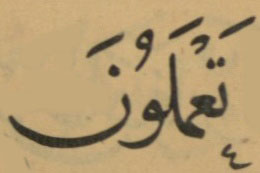 تَعْمَلُونَ
٤